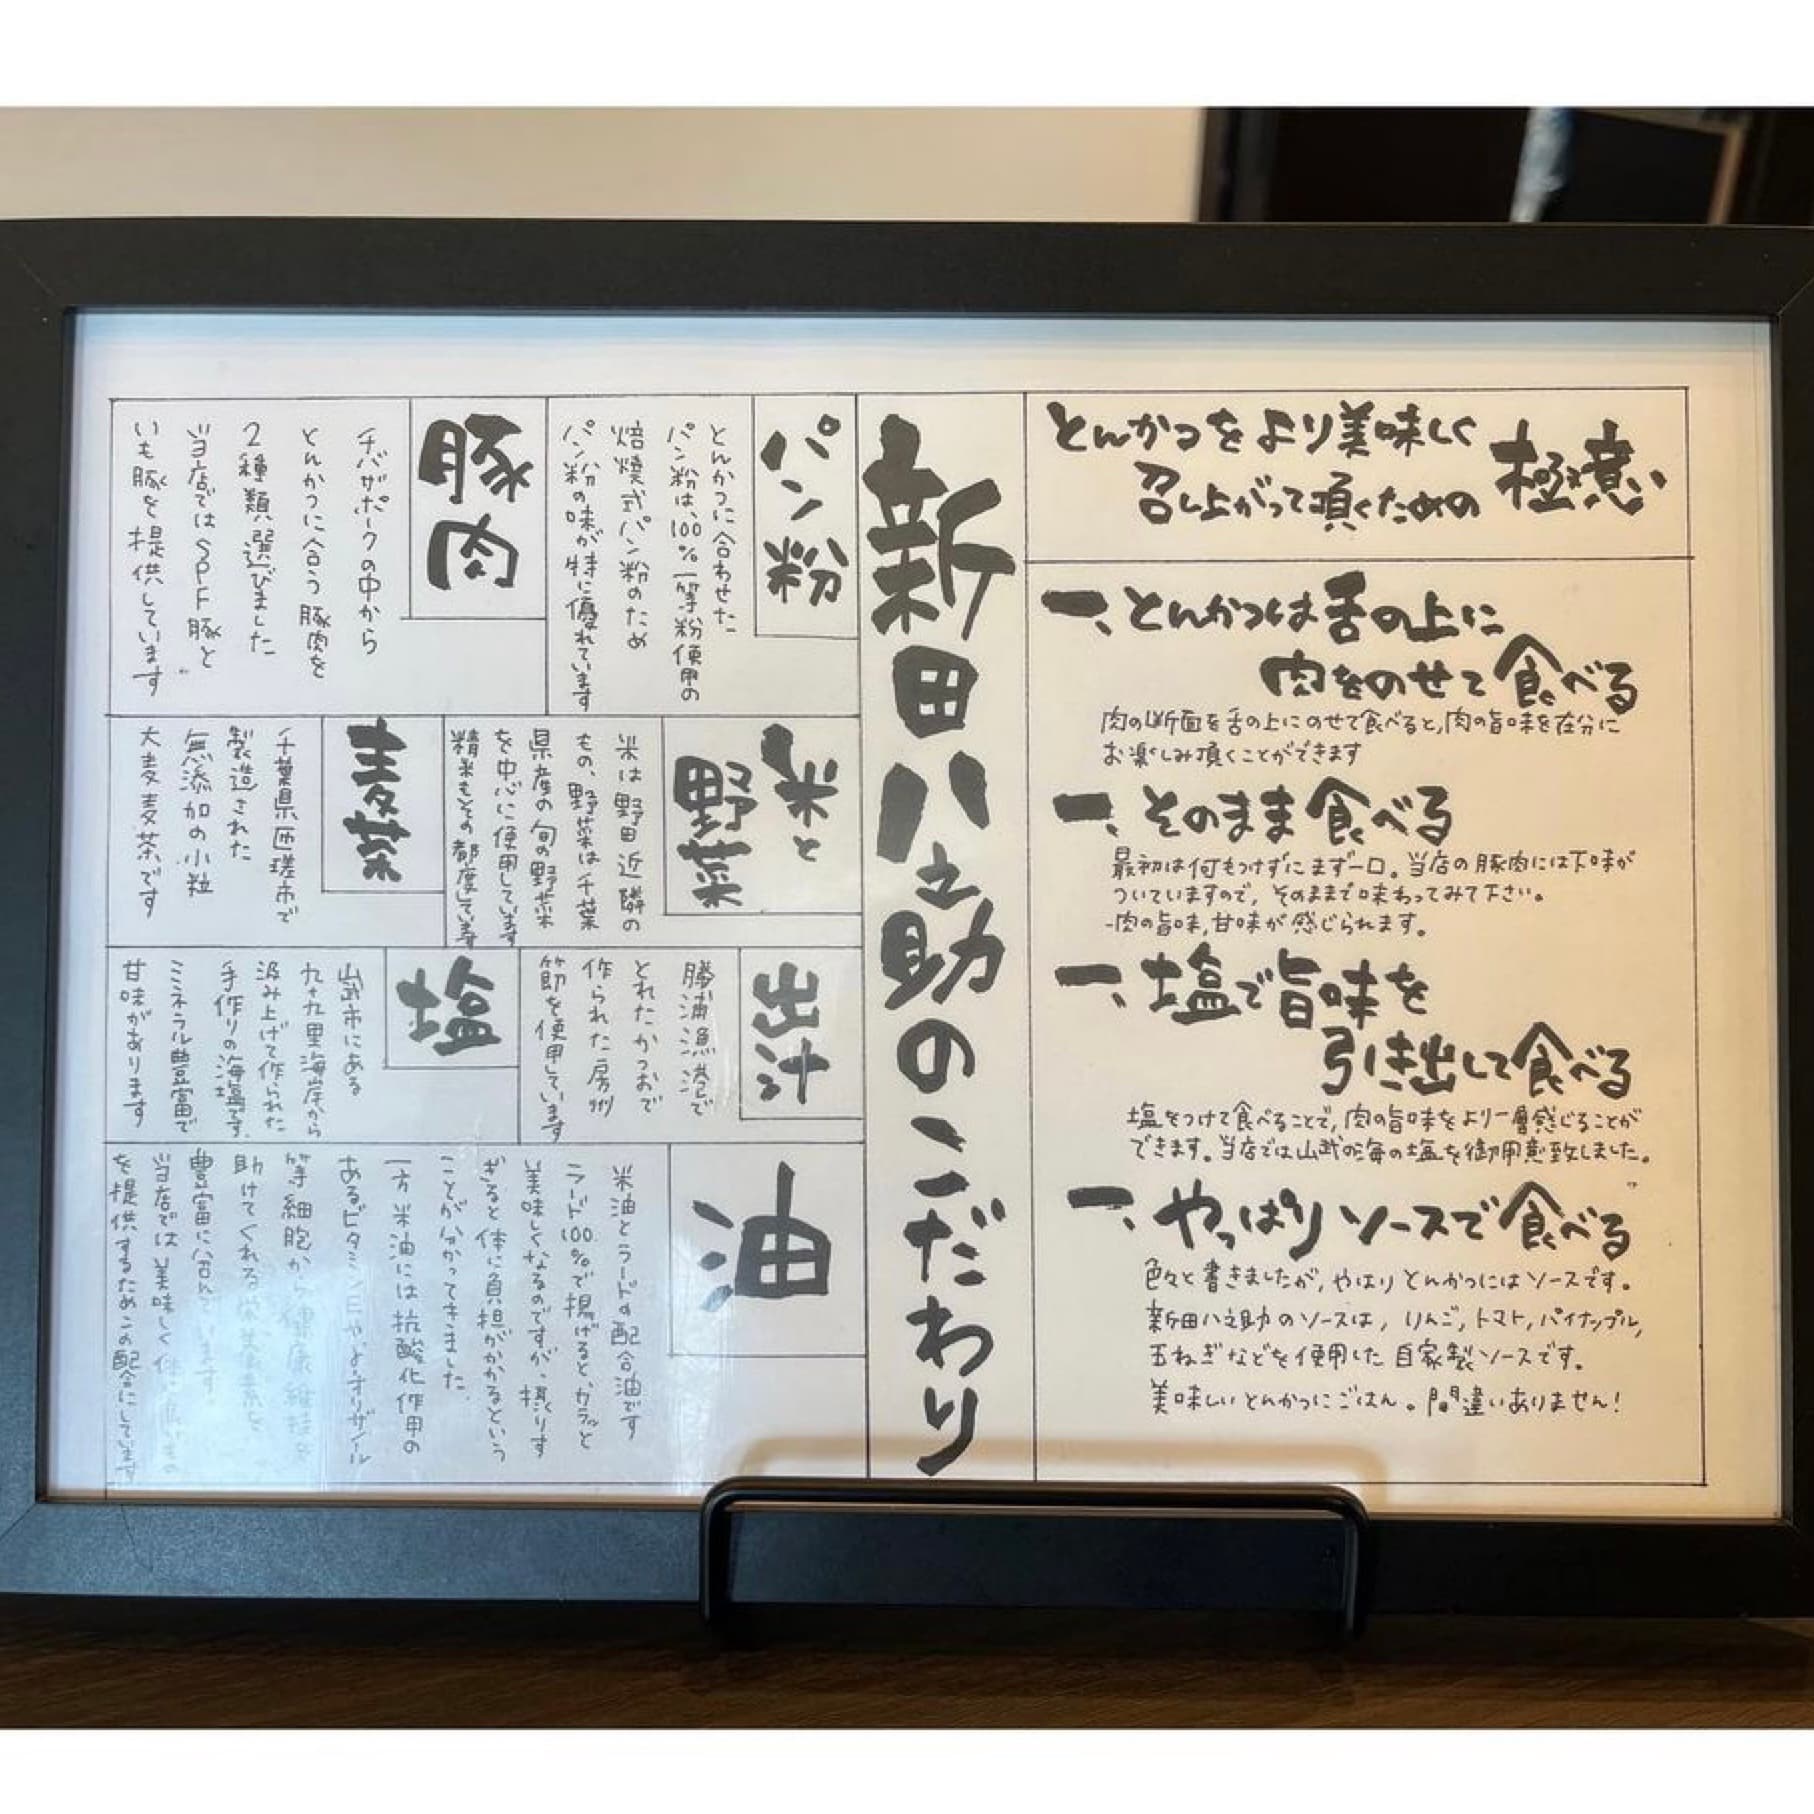 とんかつをより美味しく
召し上がって頂くための
極意
一、とんかつは舌の上に
肉をのせて食べる
肉の断面を舌の上にのせて食べると、肉の旨味を存分に
お楽しみ頂くことができます
一、そのまま食べる
最初は何もつけずにまず一口。当店の豚肉には下味が
ついていますので、そのままで味わってみて下さい。
肉の旨味,甘味が感じられます。
一、塩で旨味を
引き出して食べる
塩をつけて食べることで,肉の旨味をより一層感じることが
できます。当店では山武の海の塩を御用意致しました。
一、やっぱりソースで食べる
色々と書きましたが,やはりとんかつにはソースです。
新田八之助のソースは,りんご,トマト,パイナップル,
玉ねぎなどを使用した自家製ソースです。
美味しいとんかつにごはん。間違いありません!
新田八之助のこだわり
パン粉
とんかつに合わせた
パン粉は、100%一等粉使用の
焙焼式パン粉のため
パン粉の味が特に優れています
豚肉
チバザポークの中から
とんかつに合う豚肉を
2種類選びました
当店ではSPF豚と
いも豚を提供しています
米と
野菜
米は野田近隣の
もの、野菜は千葉
県産の旬の野菜
を中心に使用しています
精米もその都度しています
麦茶
千葉県匝瑳市で
製造された
無添加の小粒
大麦麦茶です
出汁
勝浦漁港で
とれたかつおで
作られた房州
節を使用しています
塩
山武市にある
九十九里海岸から
汲み上げて作られた
手作りの海塩です.
ミネラル豊富で
甘味があります
油
米油とラードの配合油です
ラード100%で揚げると、カラッと
美味しくなるのですが、摂りす
ぎると体に負担がかかるという
ことが分かってきました.
一方米油には抗酸化作用の
あるビタミンEや、γ-オリザノール
等細胞から健康維持を
助けてくれる栄養素を
豊富に含んでいます
当店では美味しく体に良いもの
を提供するためこの配合にしています